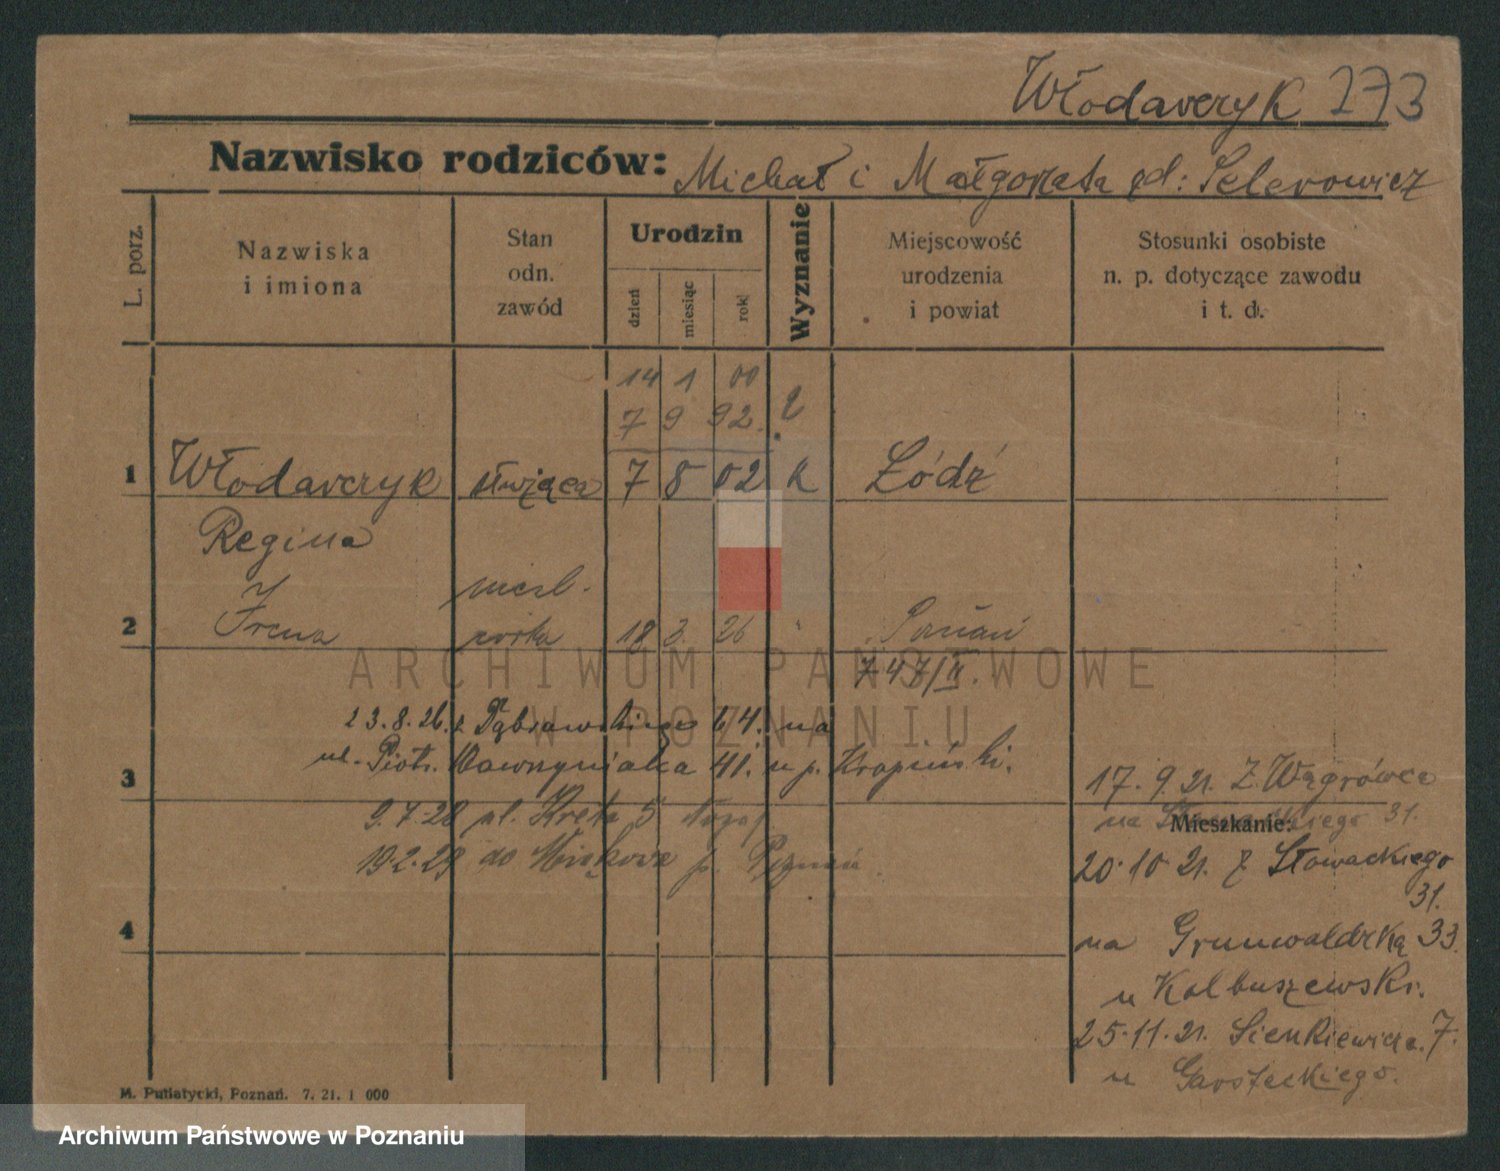 Włodarczyk 273
Nazwisko rodziców: Michał i Małgorzata Selerowicz
L. porz.
Nazwiska
i imiona
Stan
odn.
zawód
Urodzin
dzień
miesiąc
rok
Wyznanie
Miejscowość
urodzenia
i powiat
Stosunki osobiste
n. p. dotyczące zawodu
i t. d.
14 1 00
7 9 92.
1 Włodarczyk służąca 7 8 02 k Łódź
Regina
2 Irena córka 18 3. 26 " Poznań
747/II.
ARCHIWUM PAŃSTWOWE
W POZNANIU
23.8.26. z Dąbrowskiego 64. na
ul. Piotr. Wawrzyniaka 41. u p. Kropiński.
3
17. 9. 21. Z Wągrówca
na Słowackiego 31.
Mieszkanie:
9.7.28 ul. Kręta 5
19.2.29 do p. Poznań
20.10 21. z Słowackiego
31.
4
na Grunwaldzką 33.
u Kolbuszewski.
25.11.21. Sienkiewicza. 7.
u Garsteckiego.
M. Putiatycki, Poznań. 7. 21. 1 000
Archiwum Państwowe w Poznaniu